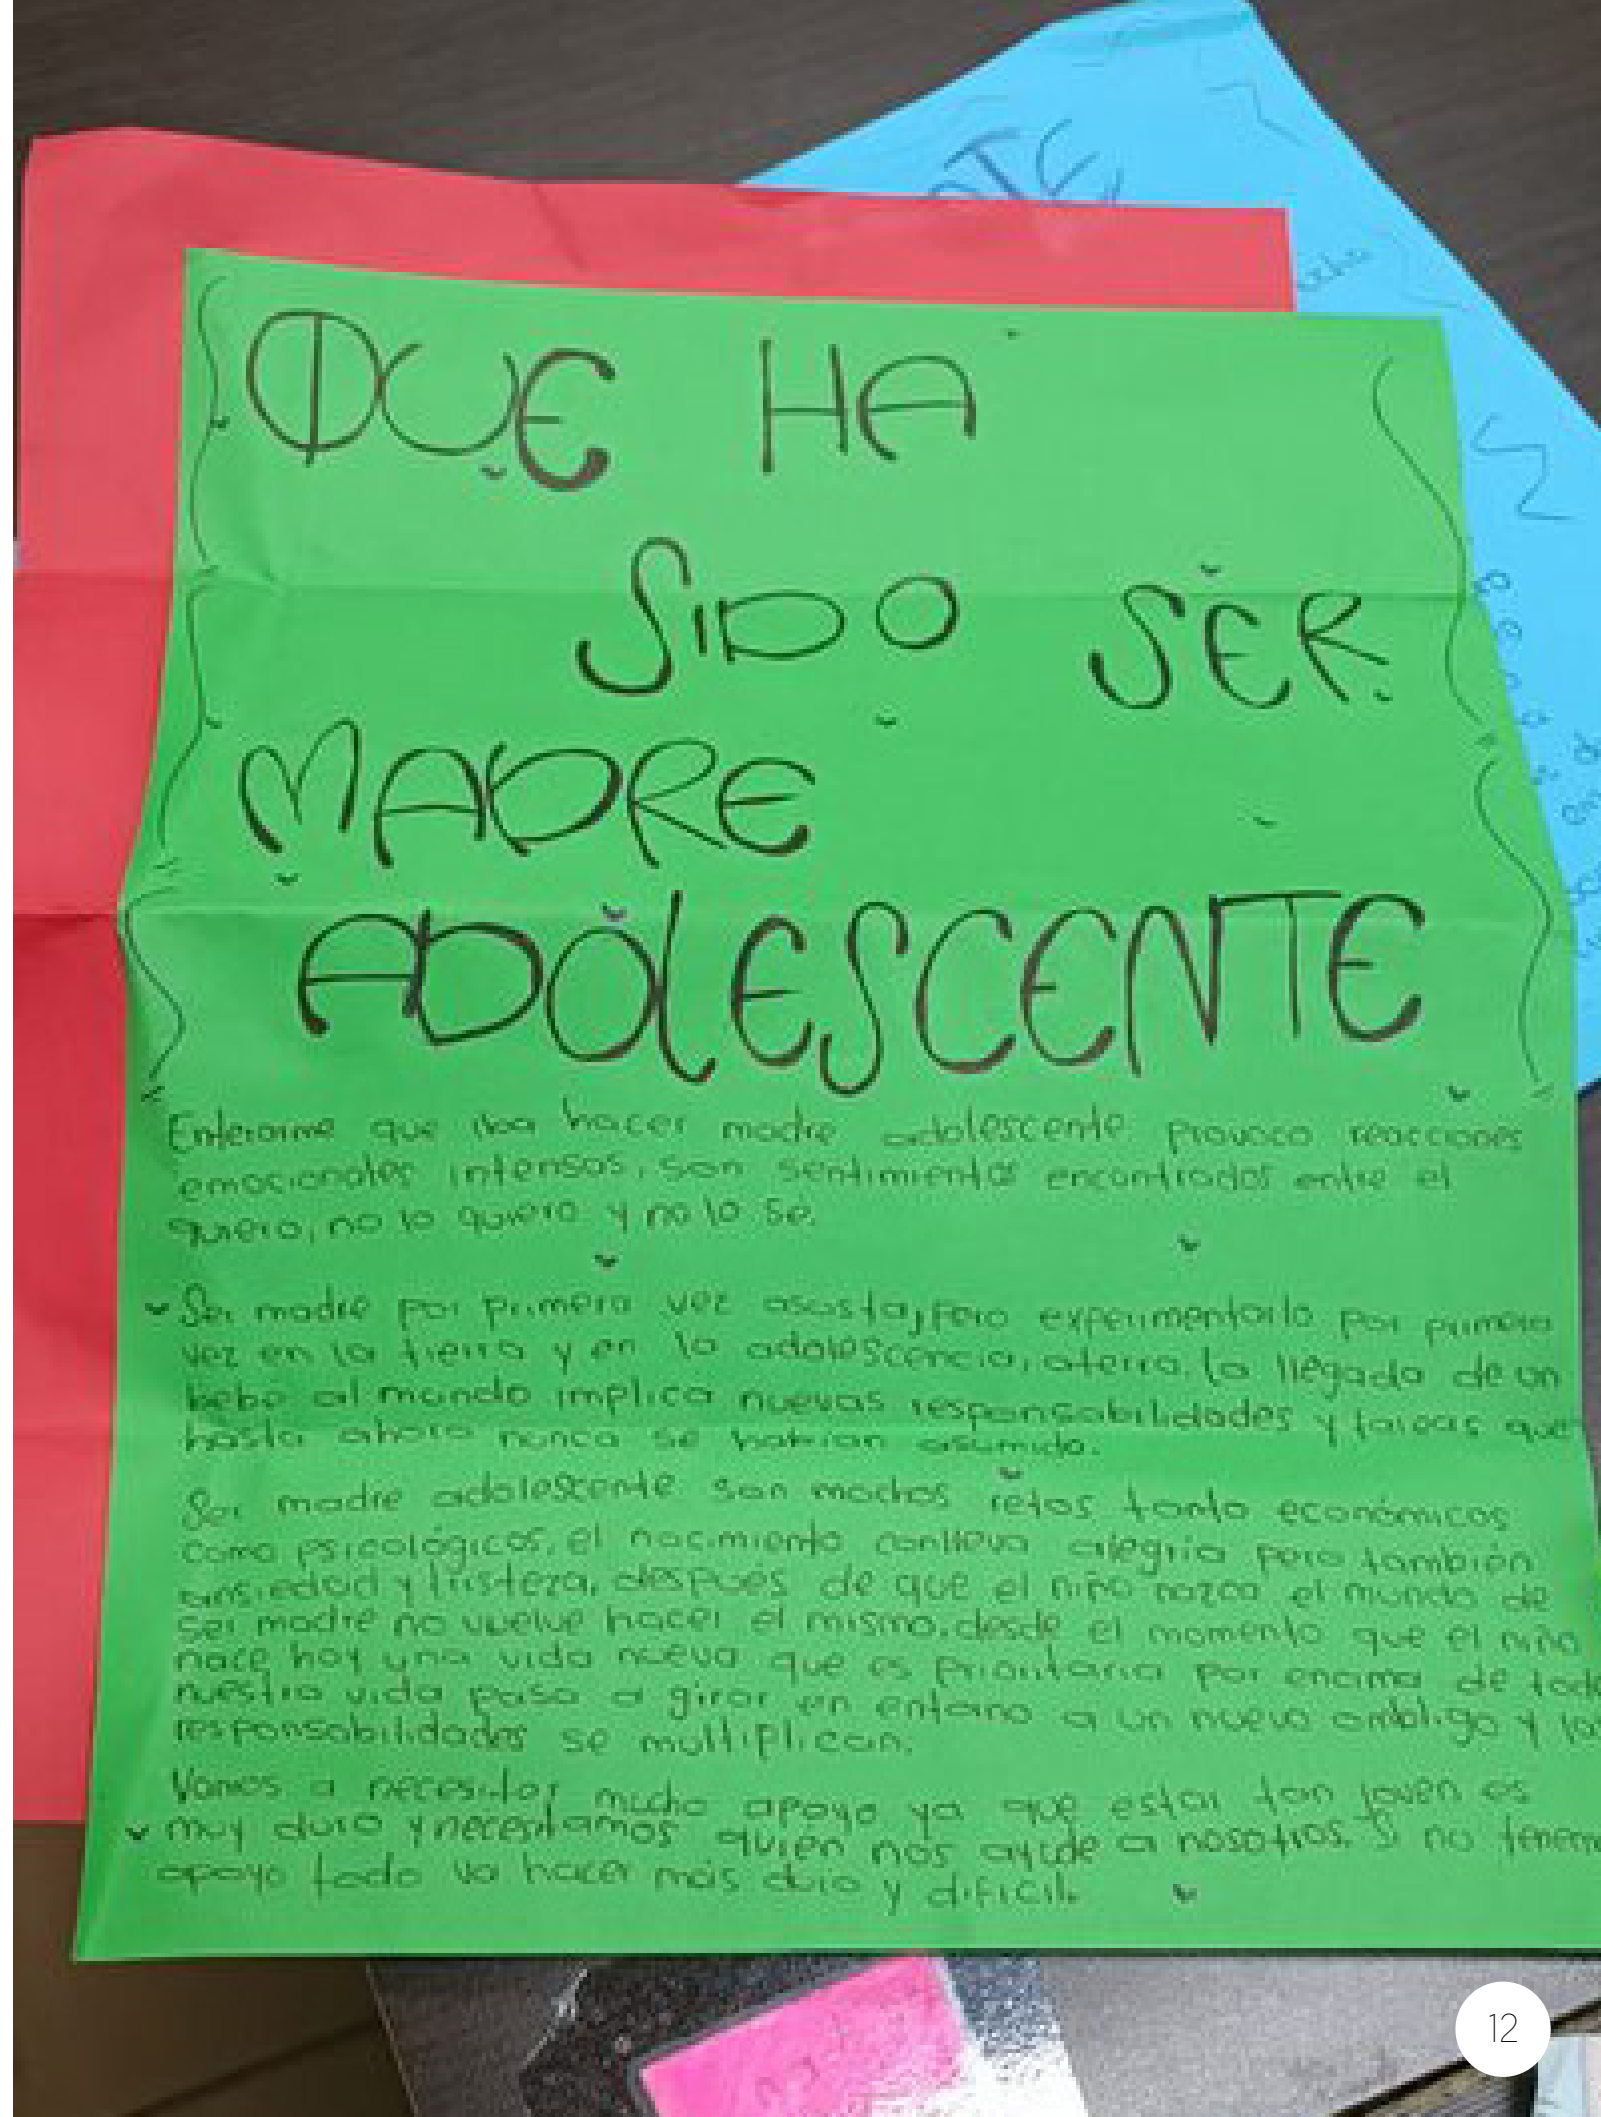 QUE HA
SIDO SER
MADRE
ADOLESCENTE
Enterarme que iba hacer madre adolescente provoco reacciones
emocionales intensas, son sentimientos encontrados entre el
quiero, no lo quiero y no lo se.
Ser madre por primera vez asusta, pero experimentarlo por primera
vez en la tierra y en la adolescencia, aterra. la llegada de un
bebé al mundo implica nuevas responsabilidades y tareas que
hasta ahora nunca se habían asumido.
Ser madre adolescente son muchos retos tanto económicos
como psicológicos, el nacimiento conlleva alegría pero también
ansiedad y tristeza, después de que el niño nazca el mundo de
ser madre no vuelve hacer el mismo, desde el momento que el niño
nace hay una vida nueva que es prioritaria por encima de todo
nuestra vida pasa a girar en entorno a un nuevo ombligo y las
responsabilidades se multiplican.
Vamos a necesitar mucho apoyo ya que estar tan joven es
muy duro y necesitamos quien nos ayude a nosotros. Si no tenem
apoyo todo va hacer más duro y difícil.
NTE
12